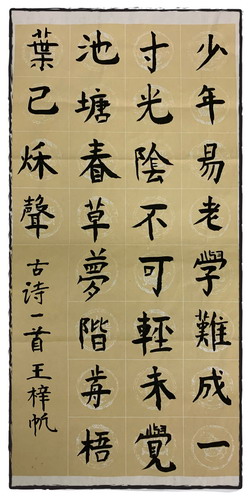 少年易老學難成一
寸光陰不可輕未覺
池塘春草夢階歬梧
葉已秌聲
古诗一首王梓帆